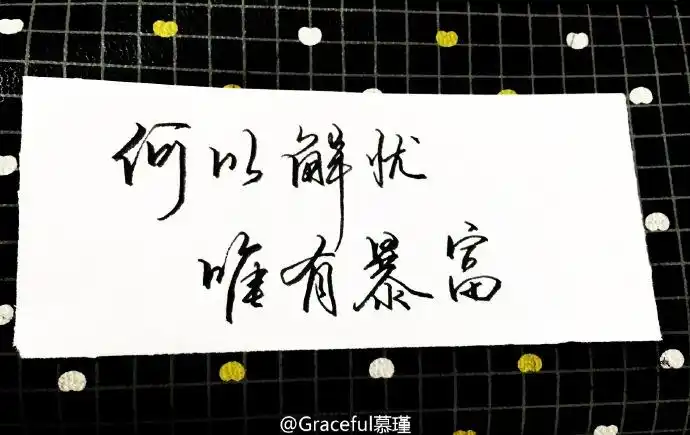 何以解忧
唯有暴富
@Graceful慕瑾